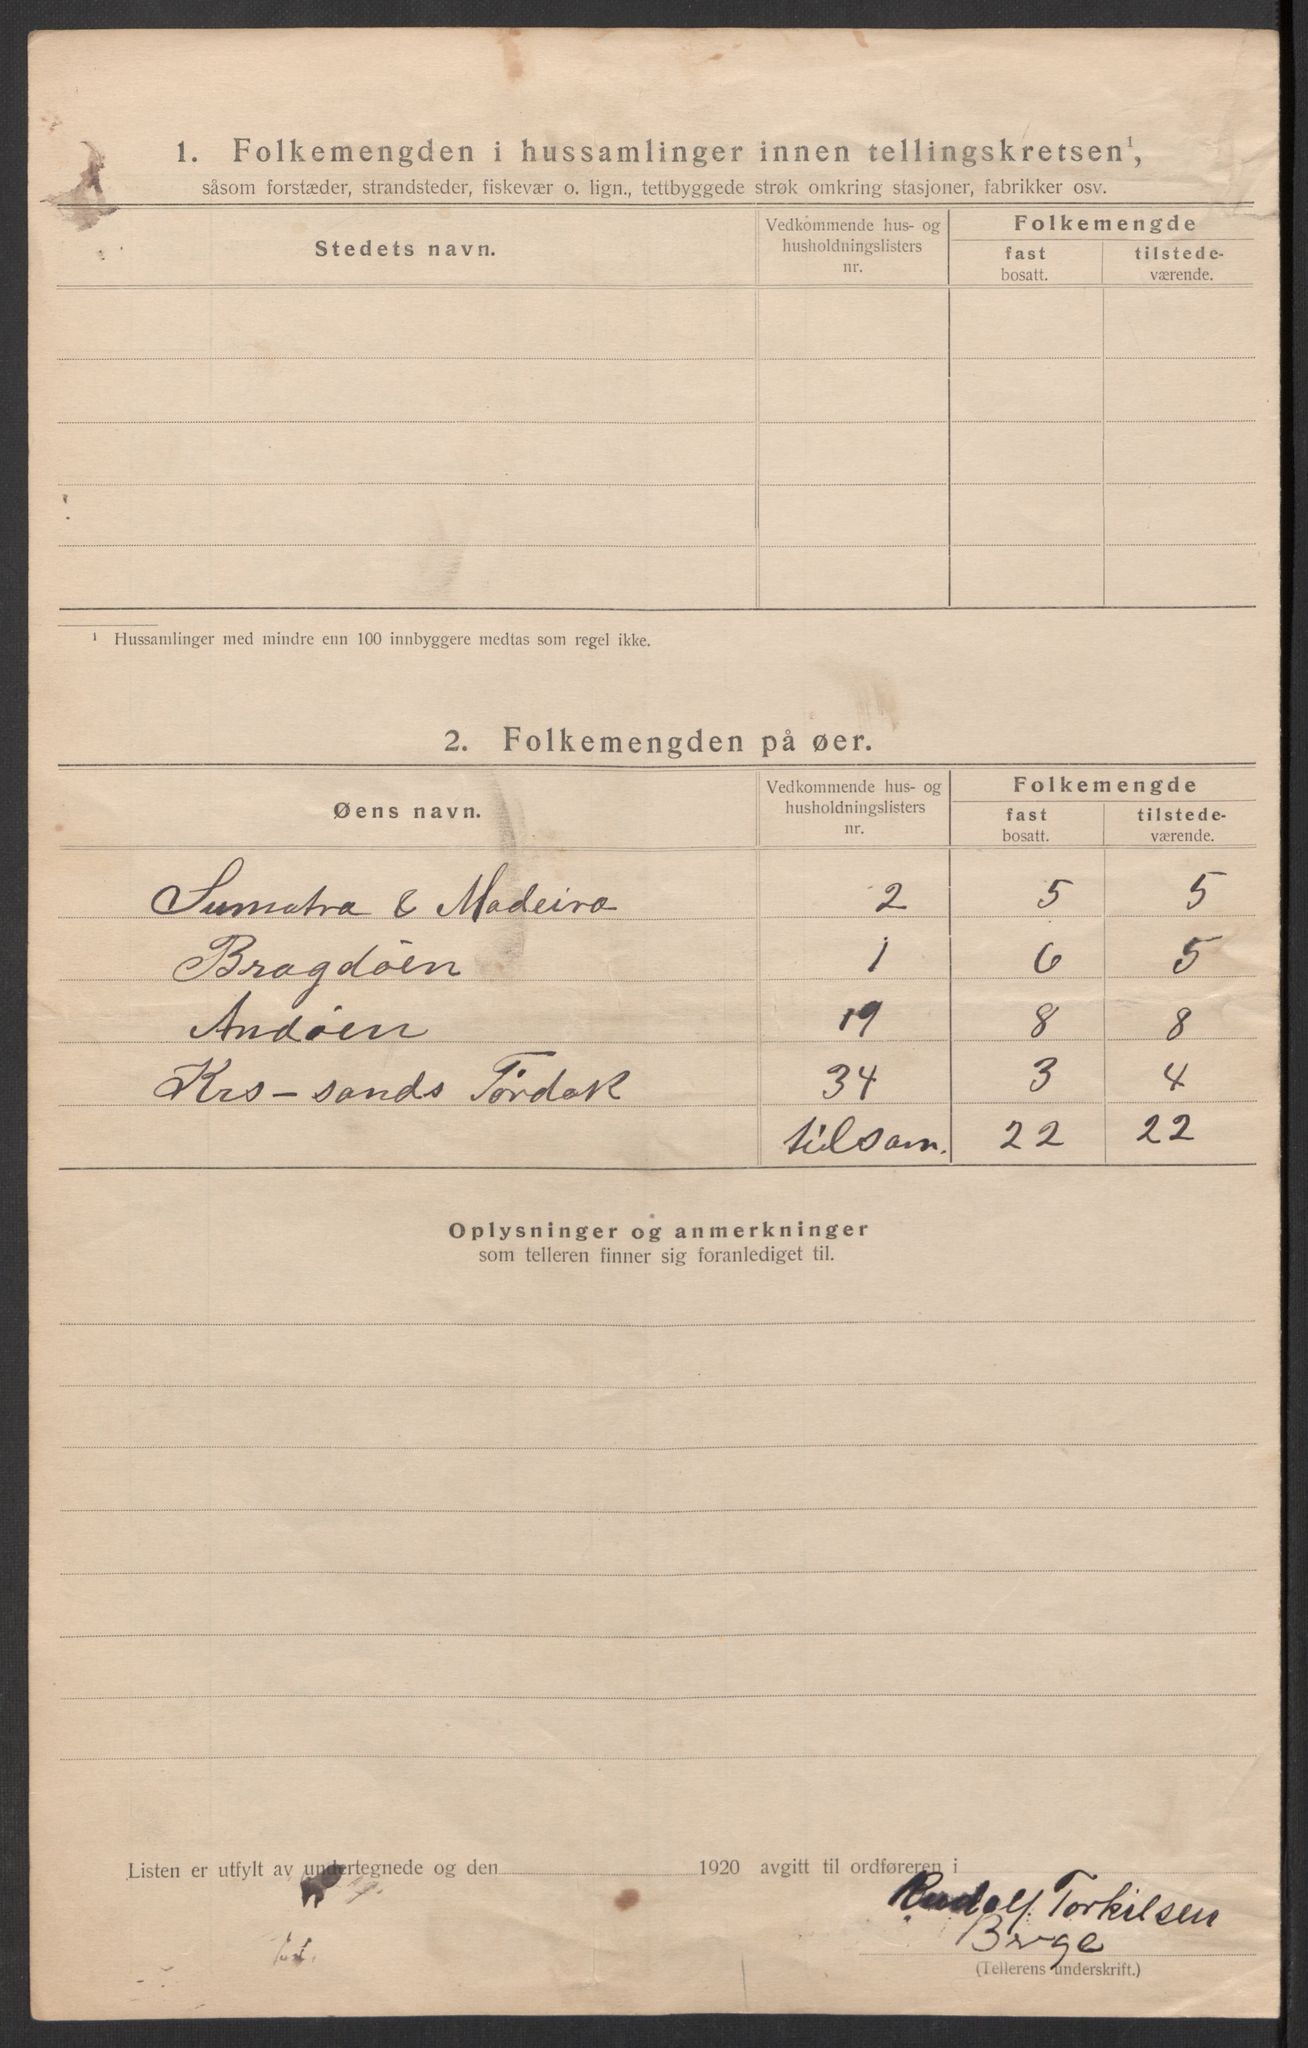 1. Folkemengden i hussamlinger innen tellingskretsen¹,
såsom forstæder, strandsteder, fiskevær o. lign., tettbyggede strøk omkring stasjoner, fabrikker osv.
Stedets navn. Vedkommende hus- og husholdningslisters nr. Folkemengde
fast bosatt. tilstede-værende.
¹ Hussamlinger med mindre enn 100 innbyggere medtas som regel ikke.
2. Folkemengden på øer.
Øens navn. Vedkommende hus- og husholdningslisters nr. Folkemengde
fast bosatt. tilstede-værende.
Sumatra & Madeira 2 5 5
Bragdöen 1 6 5
Andöen 19 8 8
Krs-sands Tördok 34 3 4
tilsam. 22 22
Oplysninger og anmerkninger
som telleren finner sig foranlediget til.
Listen er utfylt av undertegnede og den 1920 avgitt til ordføreren i
Rudolf Torkilsen
(Tellerens underskrift.)